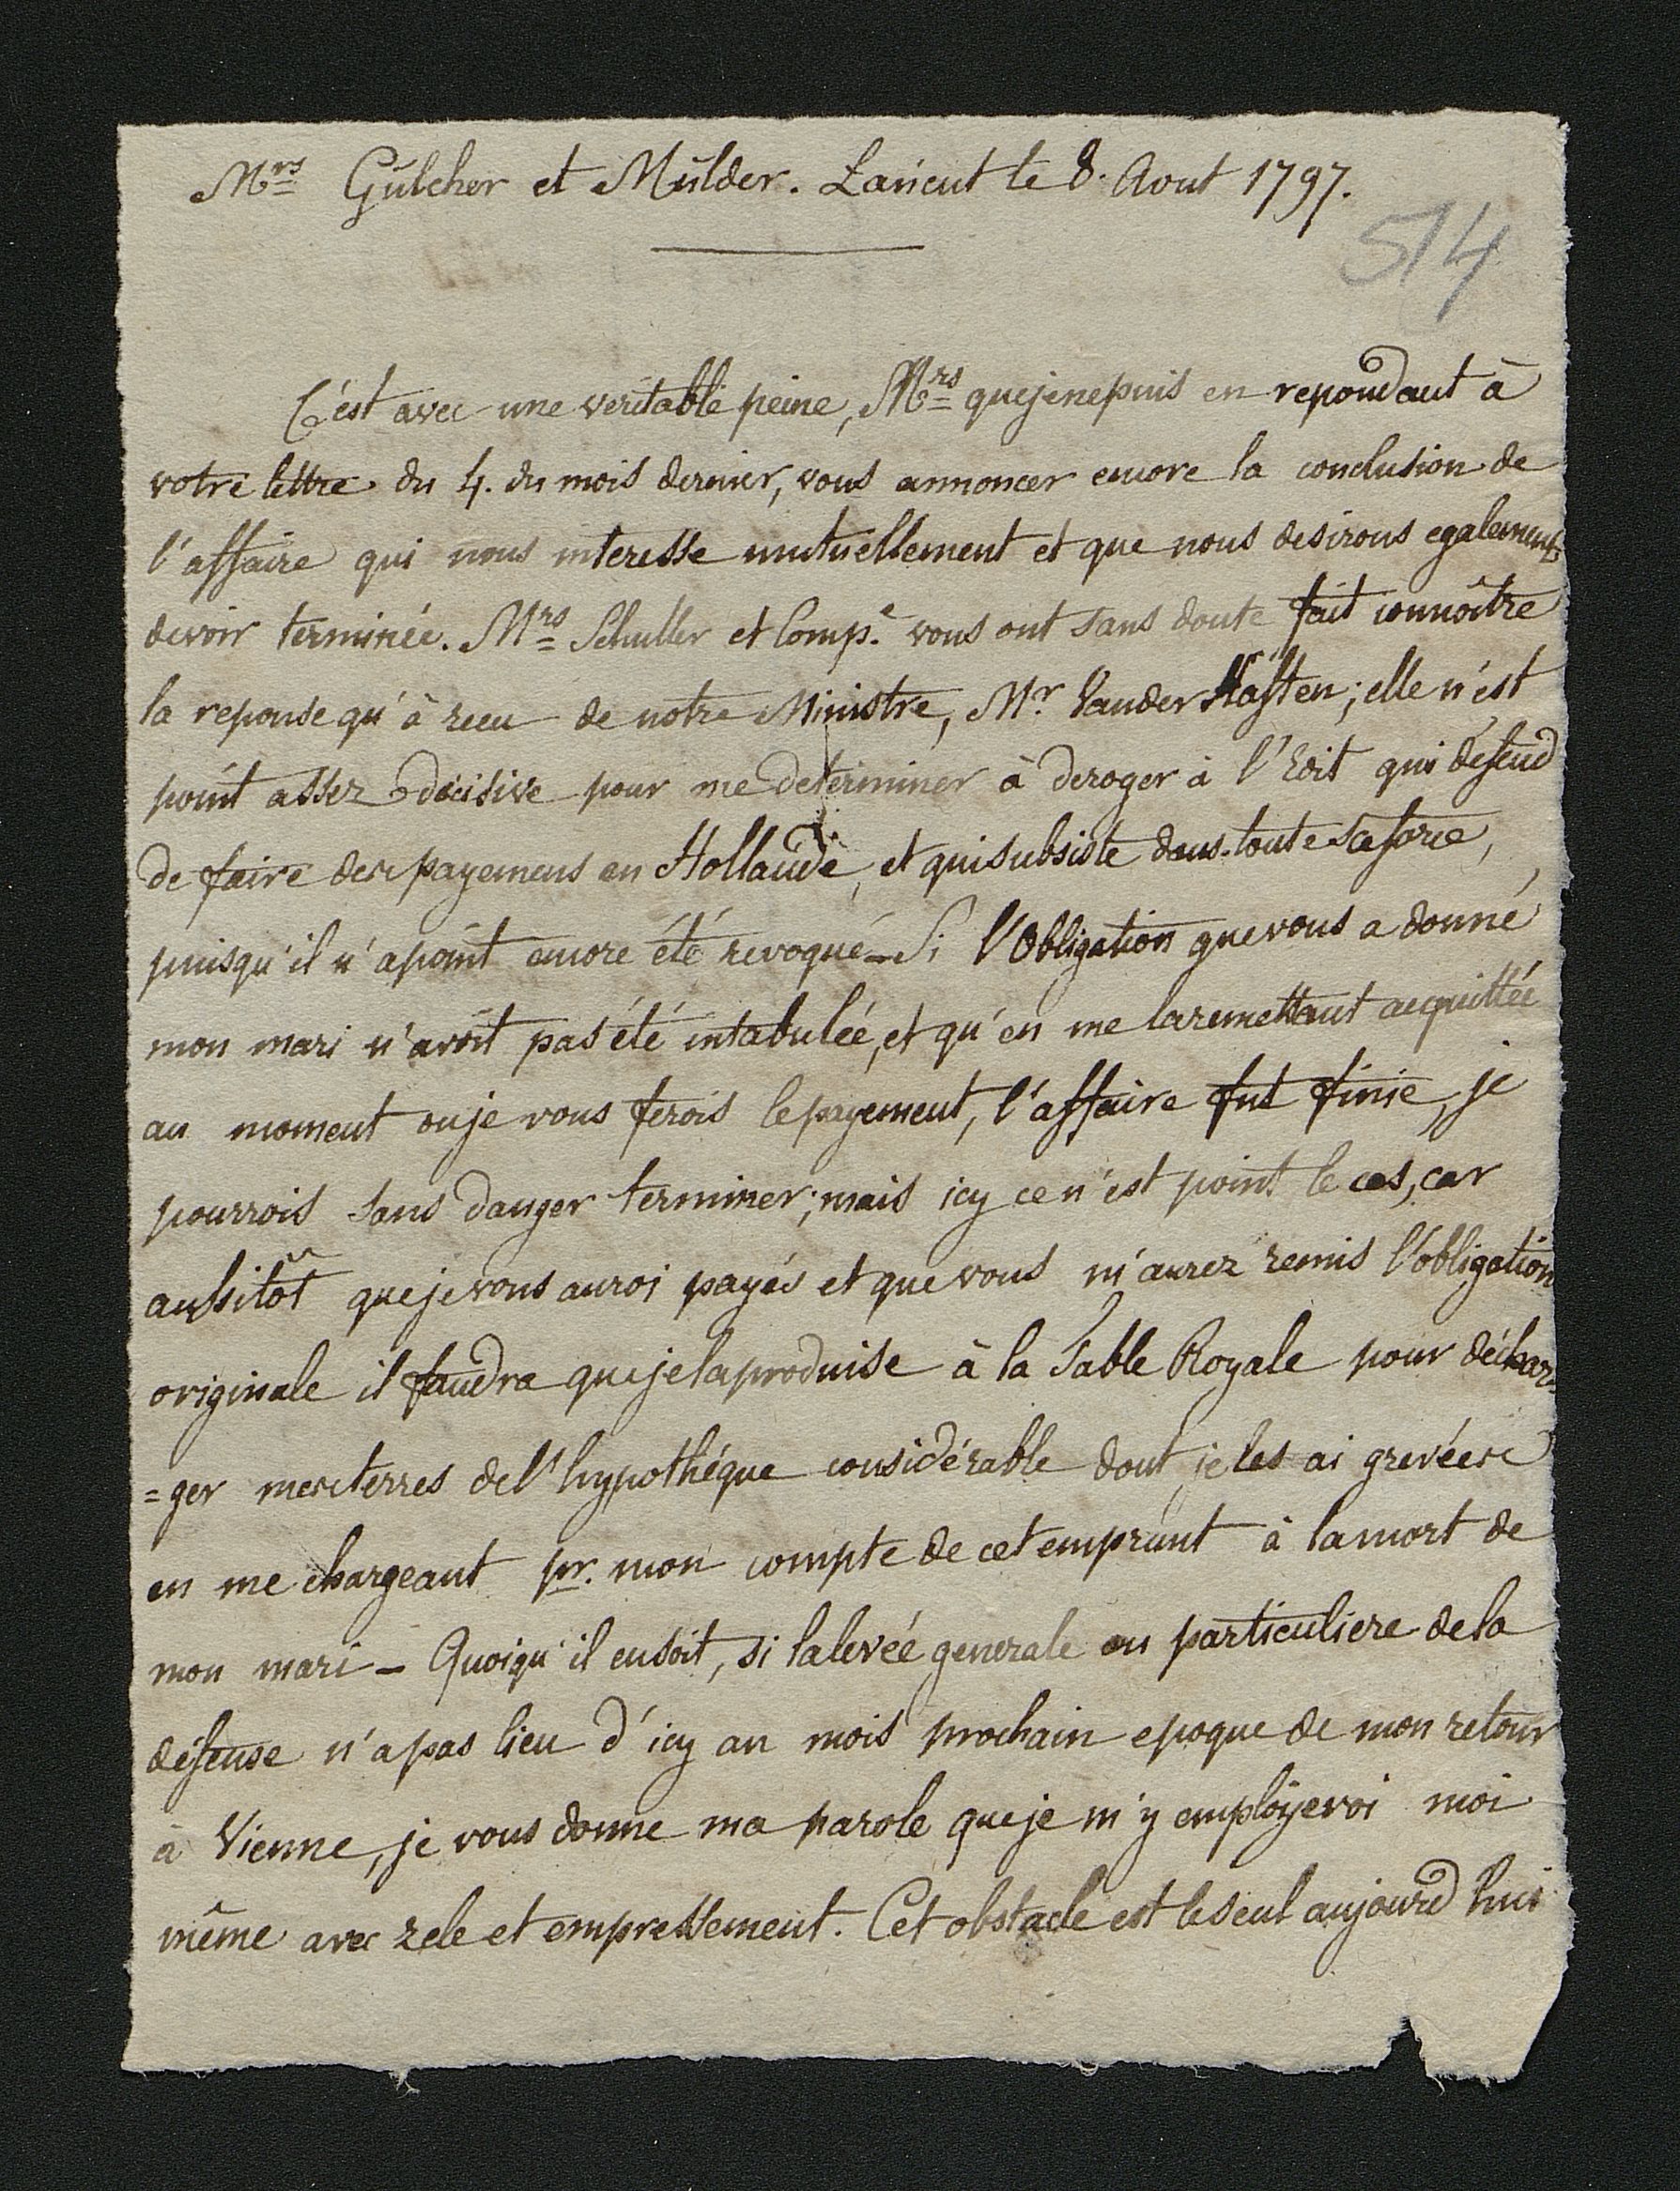 Mrs Gülcher et Mülder. Lancut le 8. Aout 1797.
514
C'est avec une veritable peine, Mrs que je ne puis en repondant à
votre lettre du 4. du mois dernier, vous annoncer encore la conclusion de
l'affaire qui nous interesse mutuellement et que nous desirons egalement
de voir terminée. Mrs Schuller et Compe. vous ont sans doute fait connoître
la reponse qu'à recu de notre Ministre, Mr. Vander Hasten; elle n'est
point assez décisive pour me determiner à deroger à l'Edit qui défend
de faire des payemens en Hollande, et qui subsiste dans toute sa force,
puisqu'il n'a point encore été revoqué – Si l'Obligation que vous a donné
mon mari n'avoit pas été intabulée, et qu'en me la remettant acquittée
au moment ou je vous ferois le payement, l'affaire fut finie, je
pourrois sans danger terminer; mais icy ce n'est point le cas, car
aussitôt que je vous aurai payés et que vous m'aurez remis l'obligation
originale il faudra que je la produise à la Table Royale pour déchar=
=ger mes terres de l'hypothéque considérable dont je les ai grevées
en me chargeant pr. mon compte de cet emprunt à la mort de
mon mari – Quoiqu'il en soit, si la levée generale ou particuliere de la
défense n'a pas lieu d'icy au mois prochain epoque de mon retour
à Vienne, je vous donne ma parole que je m'y employerai moi
même avec zele et empressement. Cet obstacle est le seul aujourd'hui